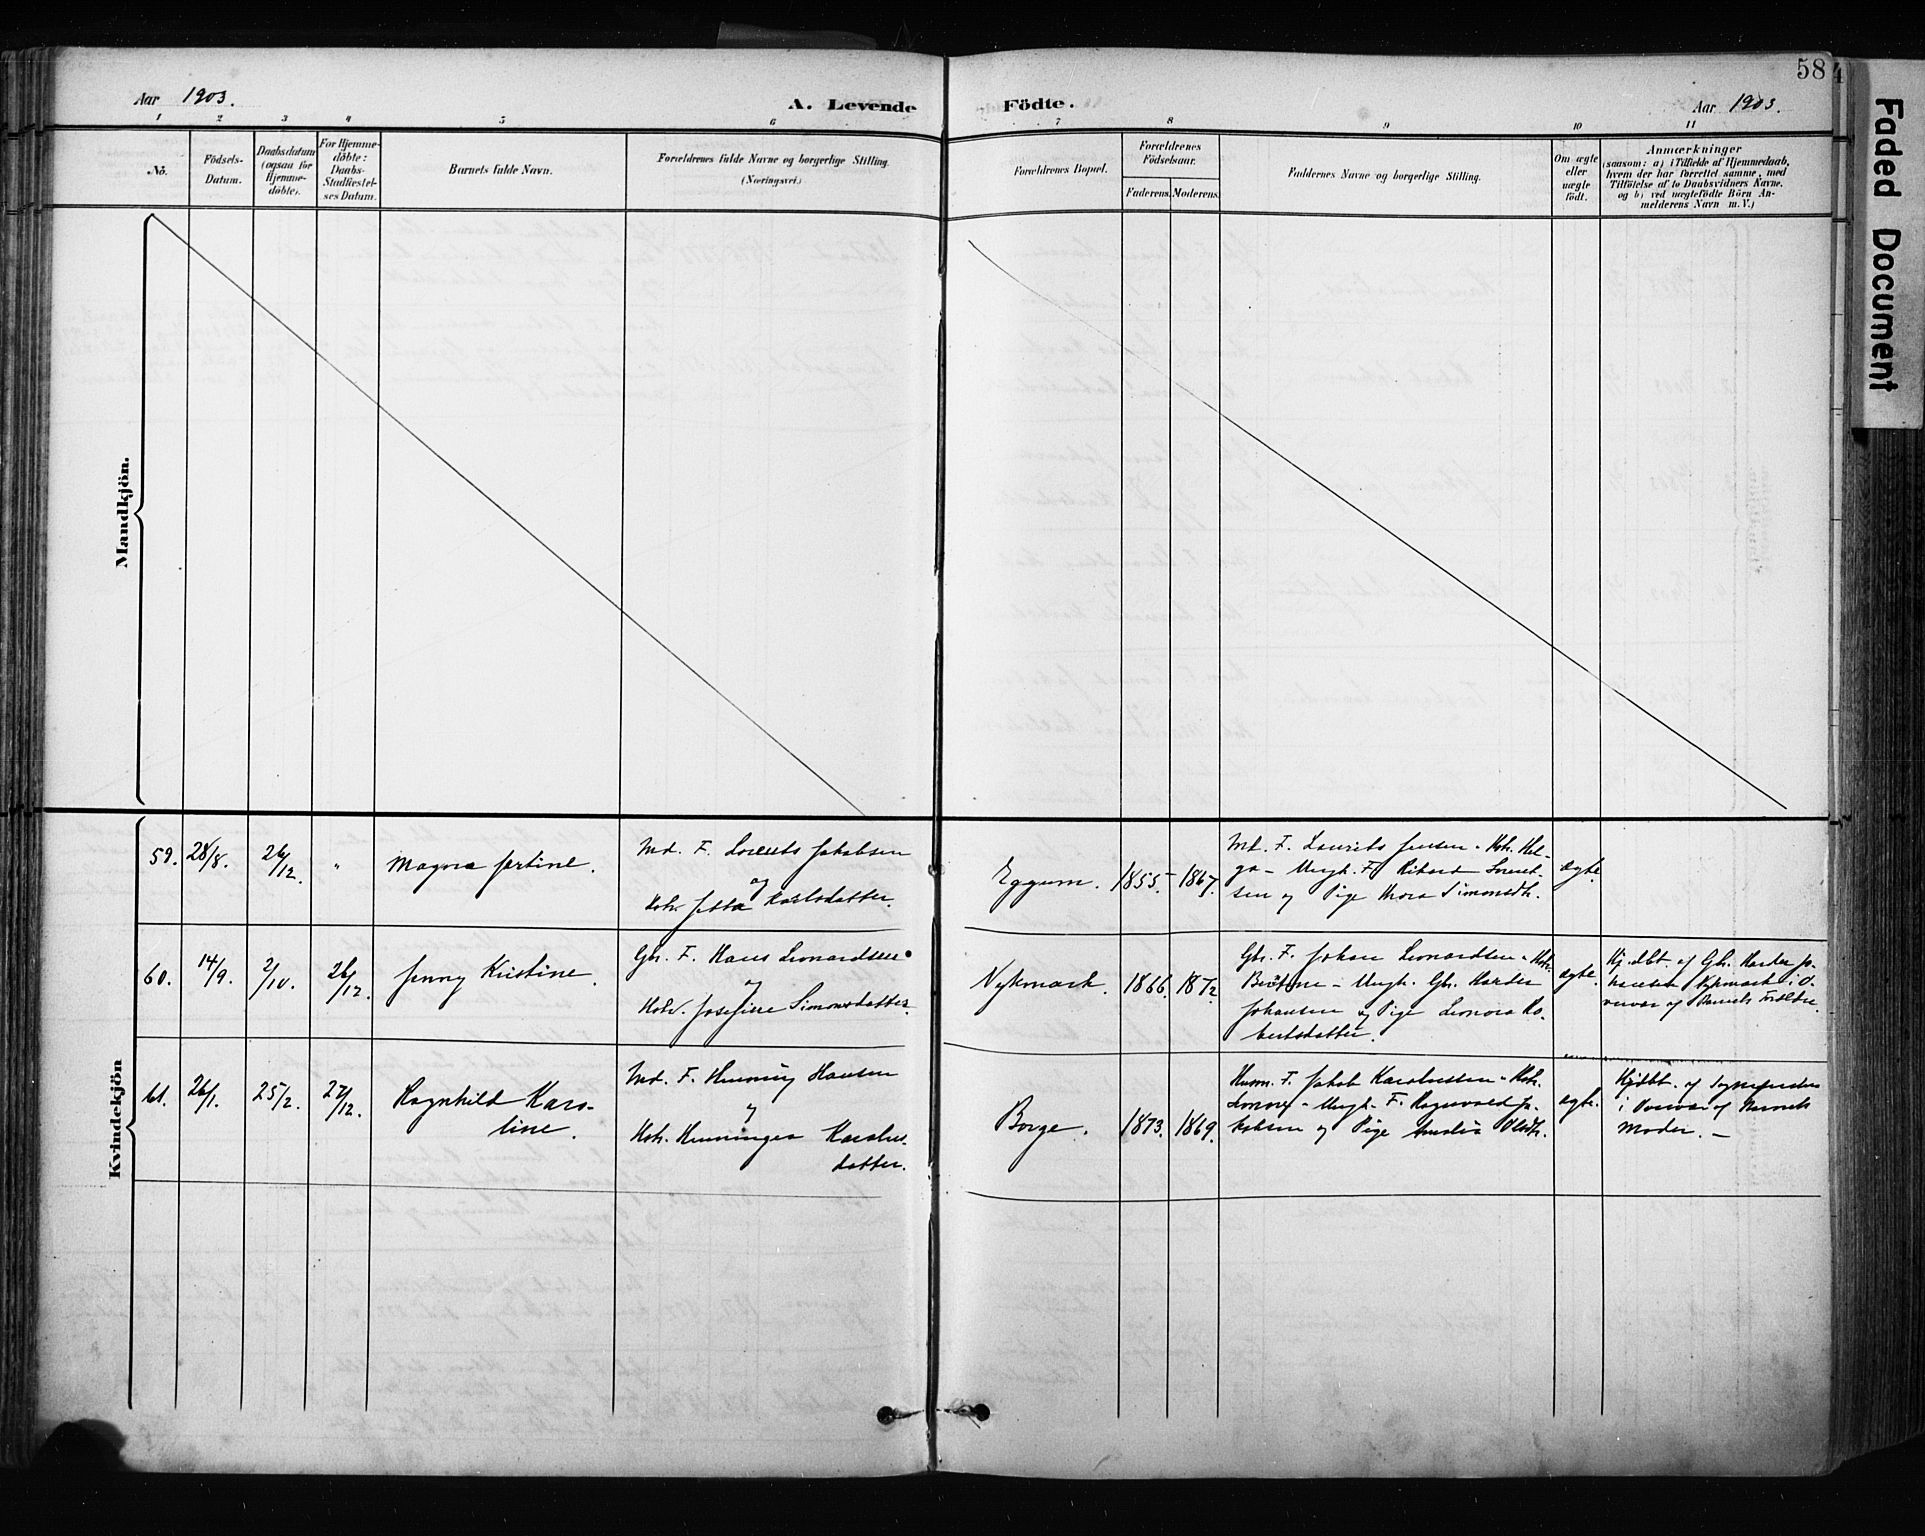 58
Faded Document
Aar 1903.
A. Levende Födte.
Aar 1903.
1 2 3 4 5 6 7 8 9 10 11
No.
Födsels-
Datum.
Daabsdatum
(ogsaa for
Hjemme-
döbte).
For Hjemme-
döbte:
Daabs-
Stadfæstel-
ses Datum.
Barnets fulde Navn.
Forældrenes fulde Navne og borgerlige Stilling.
(Næringsvei.)
Forældrenes Bopæl.
Forældrenes
Födselsaar.
Faderens. Moderens.
Faddernes Navne og borgerlige Stilling.
Om ægte
eller
uægte
födt.
Anmærkninger
(saasom: a) i Tilfælde af Hjemmedaab,
hvem der har forrettet samme, med
Tilföielse af to Daabsvidners Navne,
og b) ved uægtefödte Börn An-
melderens Navn m. V.)
Mandkjön.
Kvindekjön
59. 28/8. 26/12. "
Magna Jertine.
Md. F. Lorents Jakobsen
og
Kstr. Jetta Karlsdatter.
Eggum.
1855. 1867.
Md. F. Laurits Jensen - Kstr. Hel-
ga - Ungk. F. Rikard Lorent-
sen og Pige Thora Simonsdtr.
ægte
60. 14/9. 2/10. 26/12.
Jenny Kristine.
Gbr. F. Hans Leonardsen
og
Kstr. Josefine Simonsdatter.
Nykmark.
1866. 1872
Gbr. F. Johan Leonardsen - Kstr.
- Ungk. Gbr. Harder
Johansen og Pige Leonora Ro-
bertsdatter.
ægte.
Hj.dbt. af Gbr. Harder Jo-
hansen Nykmark i O-
vervær af Barnets Forældre.
61. 26/1. 25/2. 27/12.
Ragnhild Karo-
line.
Md. F. Henning Hansen
og
Kstr. Henninga Karolius-
datter.
Borge.
1873. 1869.
Husm. F. Jakob Karoliussen - Kstr.
- Ungk. F. Ragnvald Ja-
kobsen og Pige Amalia Olsdtr.
ægte.
Hjdbt. af Sognepresten
i Overvær af Barnets
Moder. -